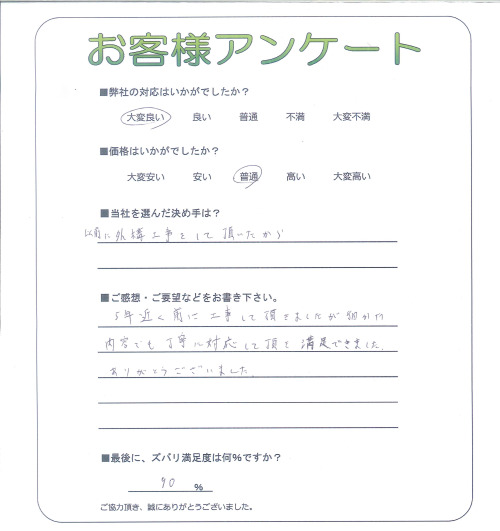 お客様アンケート
■弊社の対応はいかがでしたか？
大変良い 良い 普通 不満 大変不満
■価格はいかがでしたか？
大変安い 安い 普通 高い 大変高い
■当社を選んだ決め手は？
以前に外構工事をして頂いたから
■ご感想・ご要望などをお書き下さい。
5年近く前に工事して頂きましたが細かな
内容でも丁寧に対応して頂き満足できました。
ありがとうございました。
■最後に、ズバリ満足度は何％ですか？
90 ％
ご協力頂き、誠にありがとうございました。